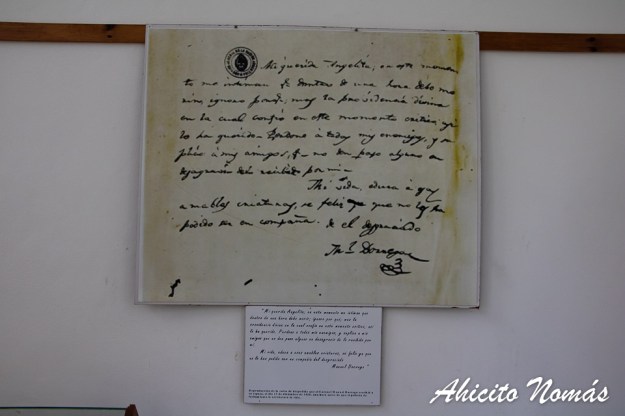 Mi querida Angelita, en este momen
to me intiman qe dentro de una hora debo mo
rir, ignoro porqe, mas la providencia divina
en la cual confío en este momento critico, asi
lo ha querido. Perdono á todos mis enemigos, y su
plico á mis amigos, qe no den paso alguno en
desagravio de lo recibido por mi.
Mi vida, educa á esas
amables criaturas, se feliz ya que no lo has
podido ser en compañia de el desgraciado
Ml Dorrego
"Mi querida Angelita, en este momento me intiman que
dentro de una hora debo morir, ignoro por qué, mas la
providencia divina en la cual confío en este momento crítico, así
lo ha querido. Perdono a todos mis enemigos, y suplico a mis
amigos que no den paso alguno en desagravio de lo recibido por
mí.
Mi vida, educa a esas amables criaturas, se feliz ya que
no lo has podido ser en compañía del desgraciado
Manuel Dorrego
Ahicito Nomás